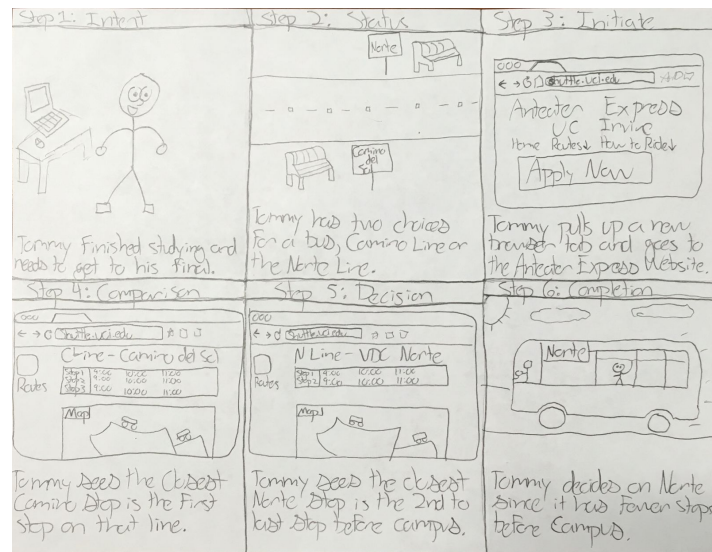 Step 1: Intent
Tommy Finished studying and
needs to get to his final.
Step 2: Status
Norte
Camino
del
Sol
Tommy has two choices
for a bus, Camino Line or
the Norte Line.
Step 3: Initiate
shuttle.uci.edu
Anteater Express
UC Irvine
Home Routes↓ How to Ride↓
Apply Now
Tommy pulls up a new
browser tab and goes to
the Anteater Express Website.
Step 4: Comparison
shuttle.uci.edu
C Line - Camino del Sol
Routes
Stop 1 9:00 10:00 11:00
Stop 2 9:00 10:00 11:00
Stop 3 9:00 10:00 11:00
Map
Tommy sees the closest
Camino Stop is the First
stop on that line.
Step 5: Decision
shuttle.uci.edu
N Line - VDC Norte
Routes
Stop 1 9:00 10:00 11:00
Stop 2 9:00 10:00 11:00
Map
Tommy sees the closest
Norte Stop is the 2nd to
last Stop before campus.
Step 6: Completion
Norte
Tommy decides on Norte
since it has Fewer stops
before Campus.